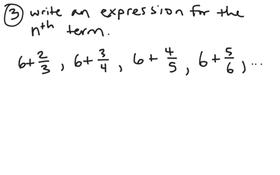 ③ write an expression for the
nᵗʰ term.
6+2/3, 6+3/4, 6+4/5, 6+5/6, ...